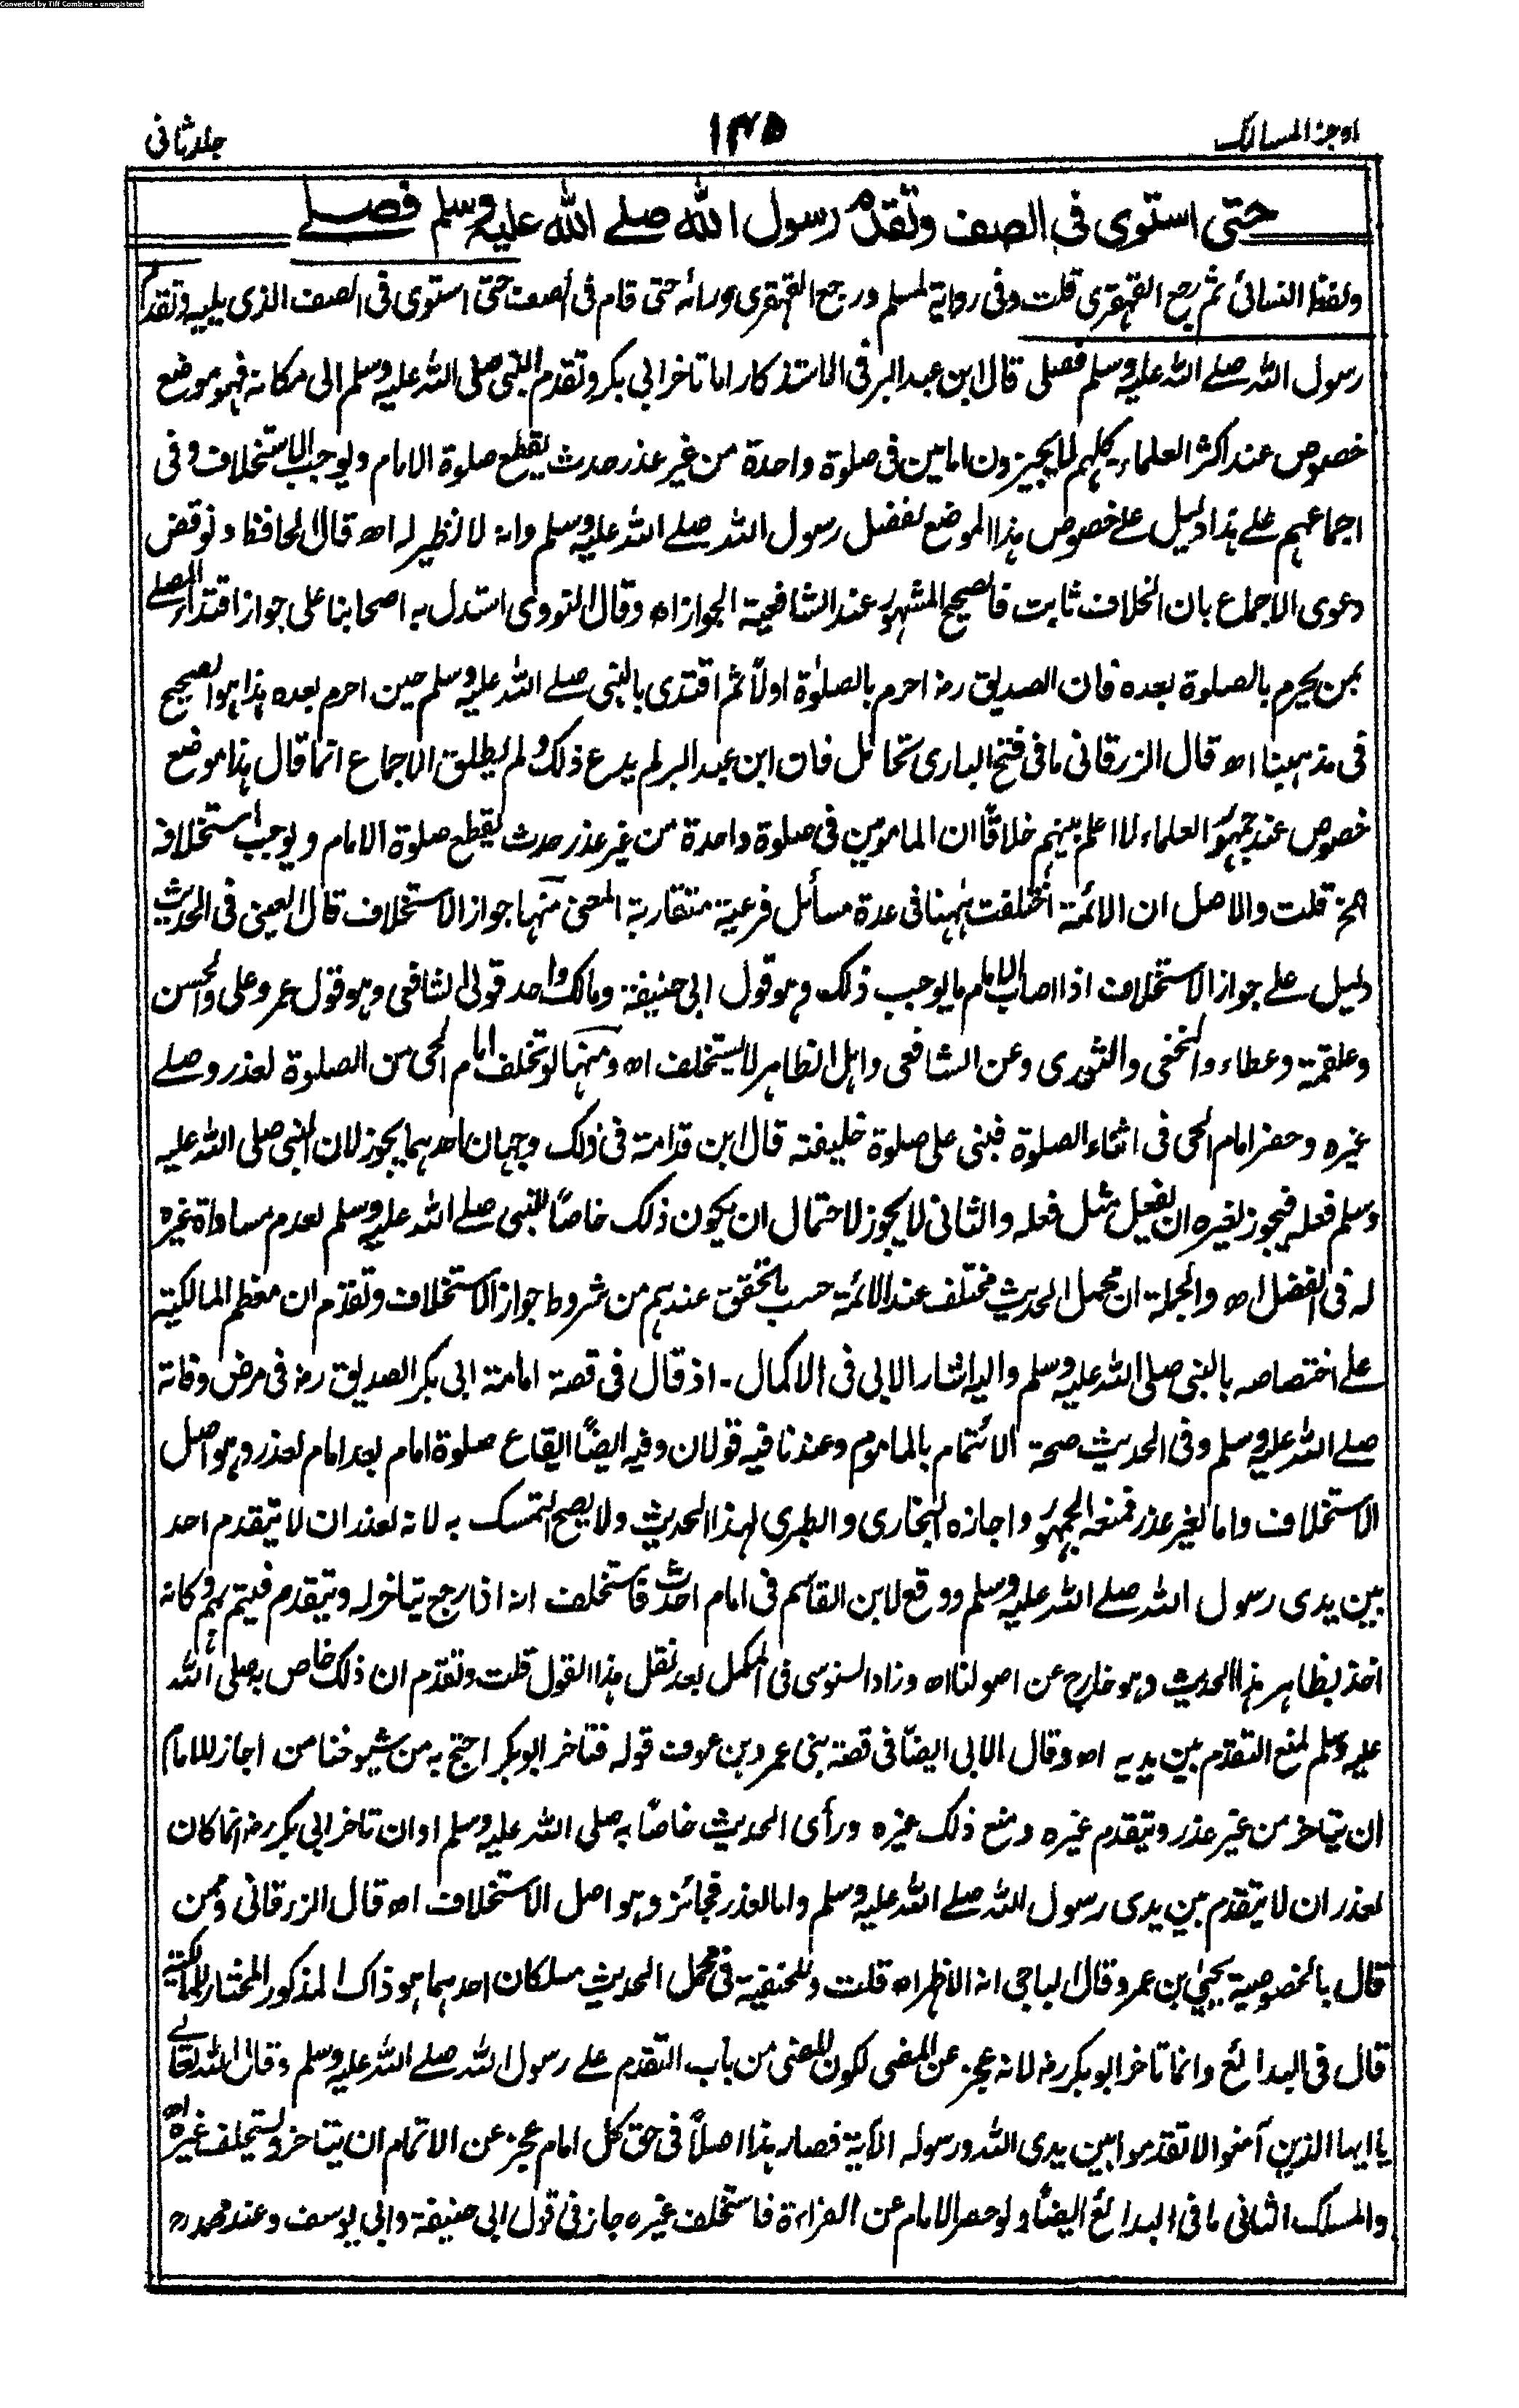 Converted by Tiff Combine - unregistered
اوجز المسالك
١٣٥
جلد ثانی
حتى استوى فى الصف وتقدم رسول الله صلے الله عليه وسلم فصلے
ولفظ النسائى ثم رجع القهقرى قلت وفى رواية لمسلم ورجع القهقرى وراءه حتى قام فى الصف حتى استوى فى الصف الذى يليه وتقدم
رسول الله صلے الله عليه وسلم فصلى قال ابن عبد البر فى الاستذكار اما تاخر ابى بكر وتقدم النبى صلى الله عليه وسلم الى مكانه فهو موضع
خصوص عند اكثر العلماء كلهم لا يجيزون امامين فى صلوة واحدة من غير عذر حدث يقطع صلوة الامام ويوجب الاستخلاف وفى
اجماعهم علے هذا دليل علے خصوص هذا الموضع لفضل رسول الله صلے الله عليه وسلم وانه لا نظير له اھ قال الحافظ ونوقض
دعوى الاجماع بان الخلاف ثابت فالصحيح المشهور عند الشافعية الجواز اھ وقال النووى استدل به اصحابنا على جواز اقتداء المصلے
بمن يحرم بالصلوة بعده فان الصديق رض احرم بالصلوة اولاً ثم اقتدى بالنبى صلے الله عليه وسلم حين احرم بعده هذا هو الصحيح
فى مذهبنا اھ قال الزرقانى ما فى فتح البارى تحامل فان ابن عبد البر لم يدع ذلك ولم يطلق الاجماع انما قال هذا موضع
خصوص عند جمهور العلماء لا اعلم بينهم خلافاً ان المامومين فى صلوة واحدة من غير عذر حدث يقطع صلوة الامام ويوجب استخلافه
الخ قلت والاصل ان الائمة اختلفت ههنا فى عدة مسائل فرعية متقاربة المعنى منها جواز الاستخلاف قال العينى فى الحديث
دليل علے جواز الاستخلاف اذا اصاب الامام ما يوجب ذلك وهو قول ابى حنيفة ومالك واحد قولى الشافعى وهو قول عمر وعلى والحسن
وعلقمة وعطاء والنخعى والثورى وعن الشافعى واهل الظاهر لا يستخلف اھ ومنها لو تخلف امام الحى من الصلوة لعذر وصلے
غيره وحضر امام الحى فى اثناء الصلوة فبنى على صلوة خليفته قال ابن قدامة فى ذلك وجهان احدهما يجوز لان النبى صلى الله عليه
وسلم فعله فيجوز لغيره ان يفعل مثل فعله والثانى لا يجوز لاحتمال ان يكون ذلك خاصاً للنبى صلے الله عليه وسلم لعدم مساواة غيره
له فى الفضل اھ والجملة ان محمل الحديث مختلف عند الائمة حسب ما تحقق عندهم من شروط جواز الاستخلاف وتقدم ان معظم المالكية
علے اختصاصه بالنبى صلى الله عليه وسلم واليه اشار الابى فى الاكمال - اذ قال فى قصة امامة ابى بكر الصديق رض فى مرض وفاته
صلے الله عليه وسلم وفى الحديث صحة الائتمام بالماموم وعندنا فيه قولان وفيه ايضاً ايقاع صلوة امام بعد امام لعذر وهو اصل
الاستخلاف واما لغير عذر فمنعه الجمهور واجازه البخارى والطبرى لهذا الحديث ولا يصح التمسك به لانه لعذر ان لا يتقدم احد
بين يدى رسول الله صلے الله عليه وسلم ووقع لابن القاسم فى امام احدث فاستخلف انه اذا رجع يتاخر له ويتقدم فيتم بهم وكانه
اخذ بظاهر هذا الحديث وهو خارج عن اصولنا اھ وزاد السنوسى فى المكمل بعد نقل هذا القول قلت وتقدم ان ذلك خاص به صلى الله
عليه وسلم لمنع التقدم بين يديه اھ وقال الابى ايضاً فى قصة بنى عمرو بن عوف قوله فتاخر ابو بكر احتج به من شيوخنا من اجاز للامام
ان يتاخر من غير عذر ويتقدم غيره ومنع ذلك غيره ورأى الحديث خاصاً به صلى الله عليه وسلم او ان تاخر ابى بكر رض انما كان
لعذر ان لا يتقدم بين يدى رسول الله صلے الله عليه وسلم واما لعذر فجائز وهو اصل الاستخلاف اھ قال الزرقانى وممن
قال بالخصوصية يحيى بن عمر وقال الباجى انه الاظهر اھ قلت وللحنفية فى محمل الحديث مسلكان احدهما هو ذاك المذكور المختار للمالكية
قال فى البدائع وانما تاخر ابو بكر رض لانه عجز عن المضى لكون المضى من باب التقدم علے رسول الله صلے الله عليه وسلم وقال الله تعالے
يا ايها الذين آمنوا لا تقدموا بين يدى الله ورسوله الآية فصار هذا اصلاً فى حق كل امام عجز عن الاتمام ان يتاخر ويستخلف غيره اھ
والمسلك الثانى ما فى البدائع ايضاً ولو حصر الامام عن القراءة فاستخلف غيره جاز فى قول ابى حنيفة وابى يوسف وعند محمد رح